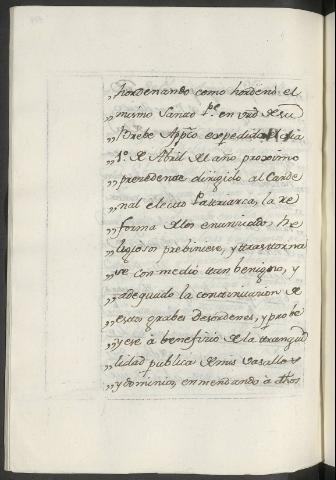 „hordenando como hordenó el
„mismo Santo Pe. en vrd. de su
„Brebe Appco. expedido el dia
„1º. de Abril del año proximo
„precedente dirigido al Carde
„nal electo Patriarca, la re
„forma de los enunciados, Re
„ligiosos prebiniese, y trastorna
„se con medio tan benigno, y
„adequado la continuacion de
„estos grabes desordenes, y probe
„yese à beneficio de la tranqui
„lidad publica de mis vasallos
„y dominios, enmendando à dhos